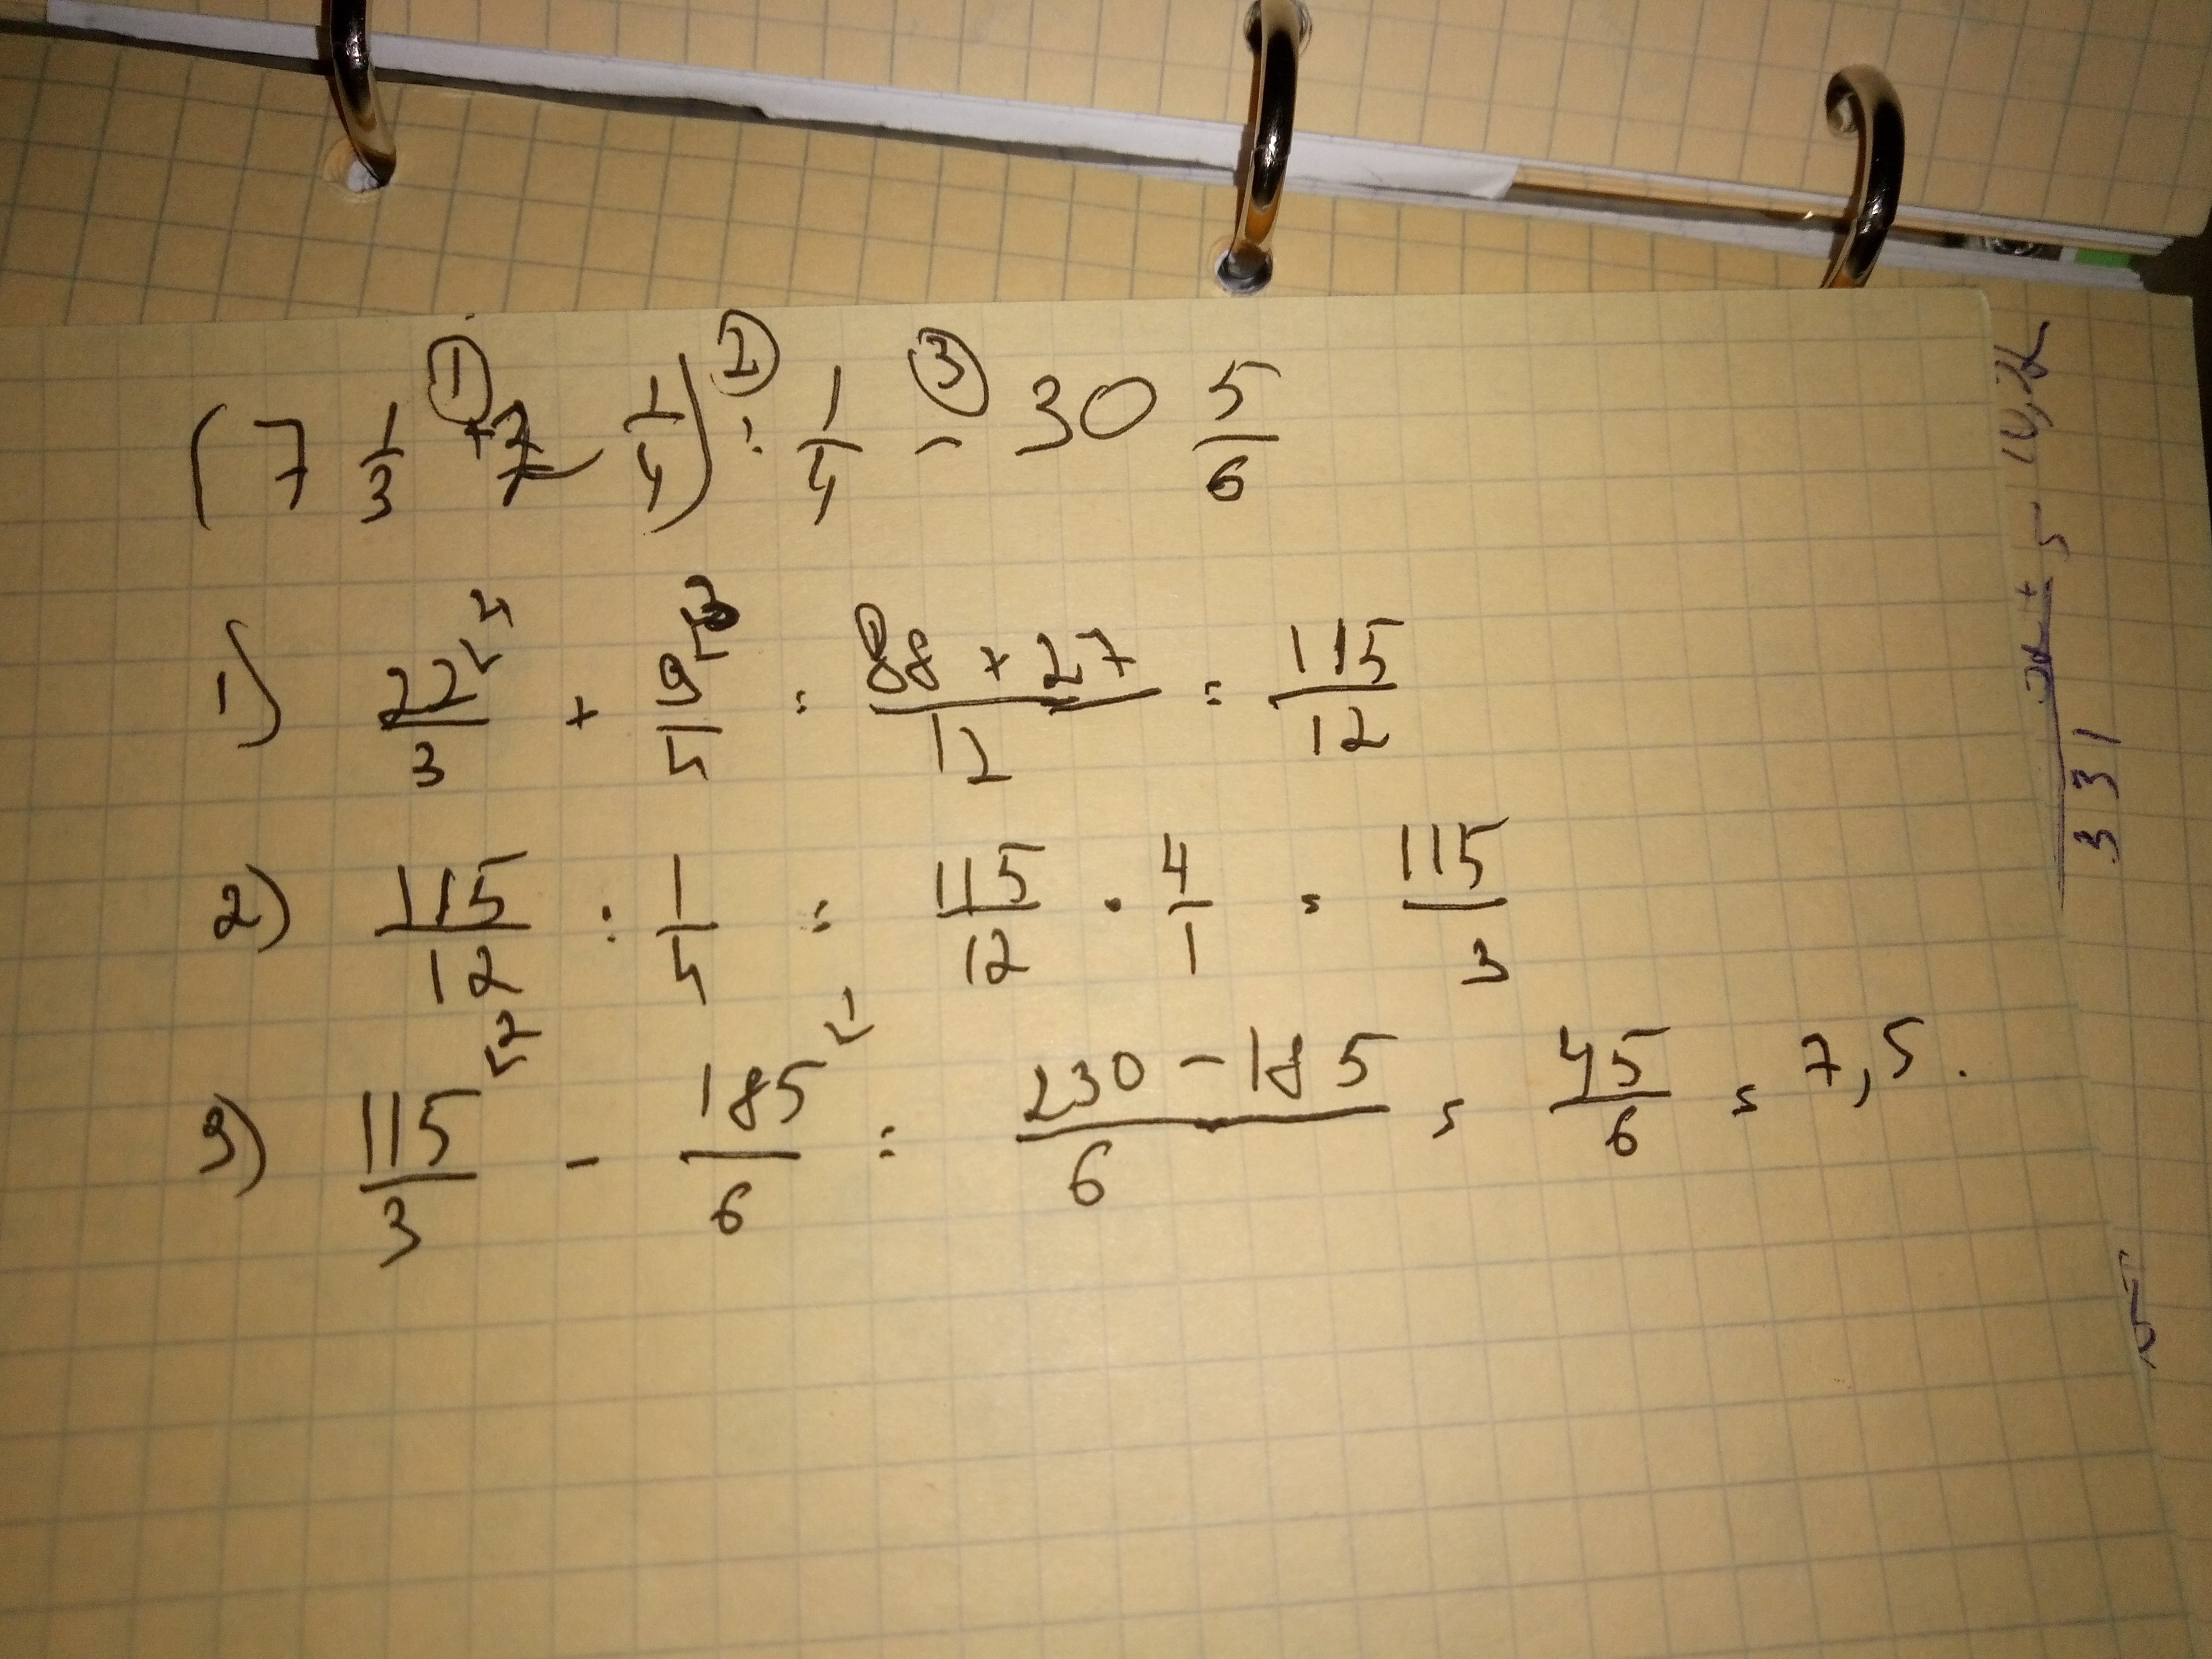 (7 1/3 ① + 2 1/4) ② : 1/4 ③ - 30 5/6
1) 22/3 ⌞4 + 9/4 ⌞3 = (88 + 27)/12 = 115/12
2) 115/12 : 1/4 = 115/12 · 4/1 = 115/3
3) 115/3 ⌞2 - 185/6 ⌞1 = (230 - 185)/6 = 45/6 = 7,5.
331